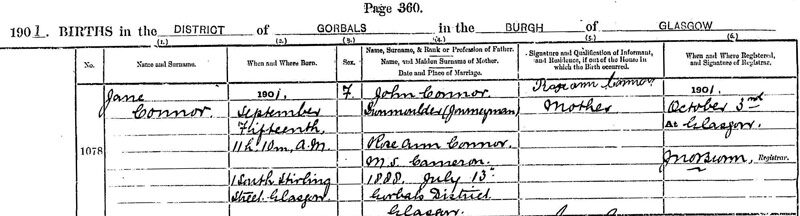 Page 360.
1901. BIRTHS in the DISTRICT of GORBALS in the BURGH of GLASGOW
(1.) (2.) (3.) (4.) (5.) (6.)
No. Name and Surname. When and Where Born. Sex. Name, Surname, & Rank or Profession of Father. Name, and Maiden Surname of Mother. Date and Place of Marriage. Signature and Qualification of Informant, and Residence, if out of the House in which the Birth occurred. When and Where Registered, and Signature of Registrar.
1078
Jane
Connor
1901.
September
Fifteenth,
11 h. 10 m. A.M.
1 South Stirling
Street, Glasgow.
F.
John Connor
Ironmoulder (Journeyman)
Rose Ann Connor
M.S. Cameron.
1888. July 13th
Gorbals District
Glasgow.
Rose ann Connor
Mother
1901.
October 3rd
At Glasgow.
Registrar.